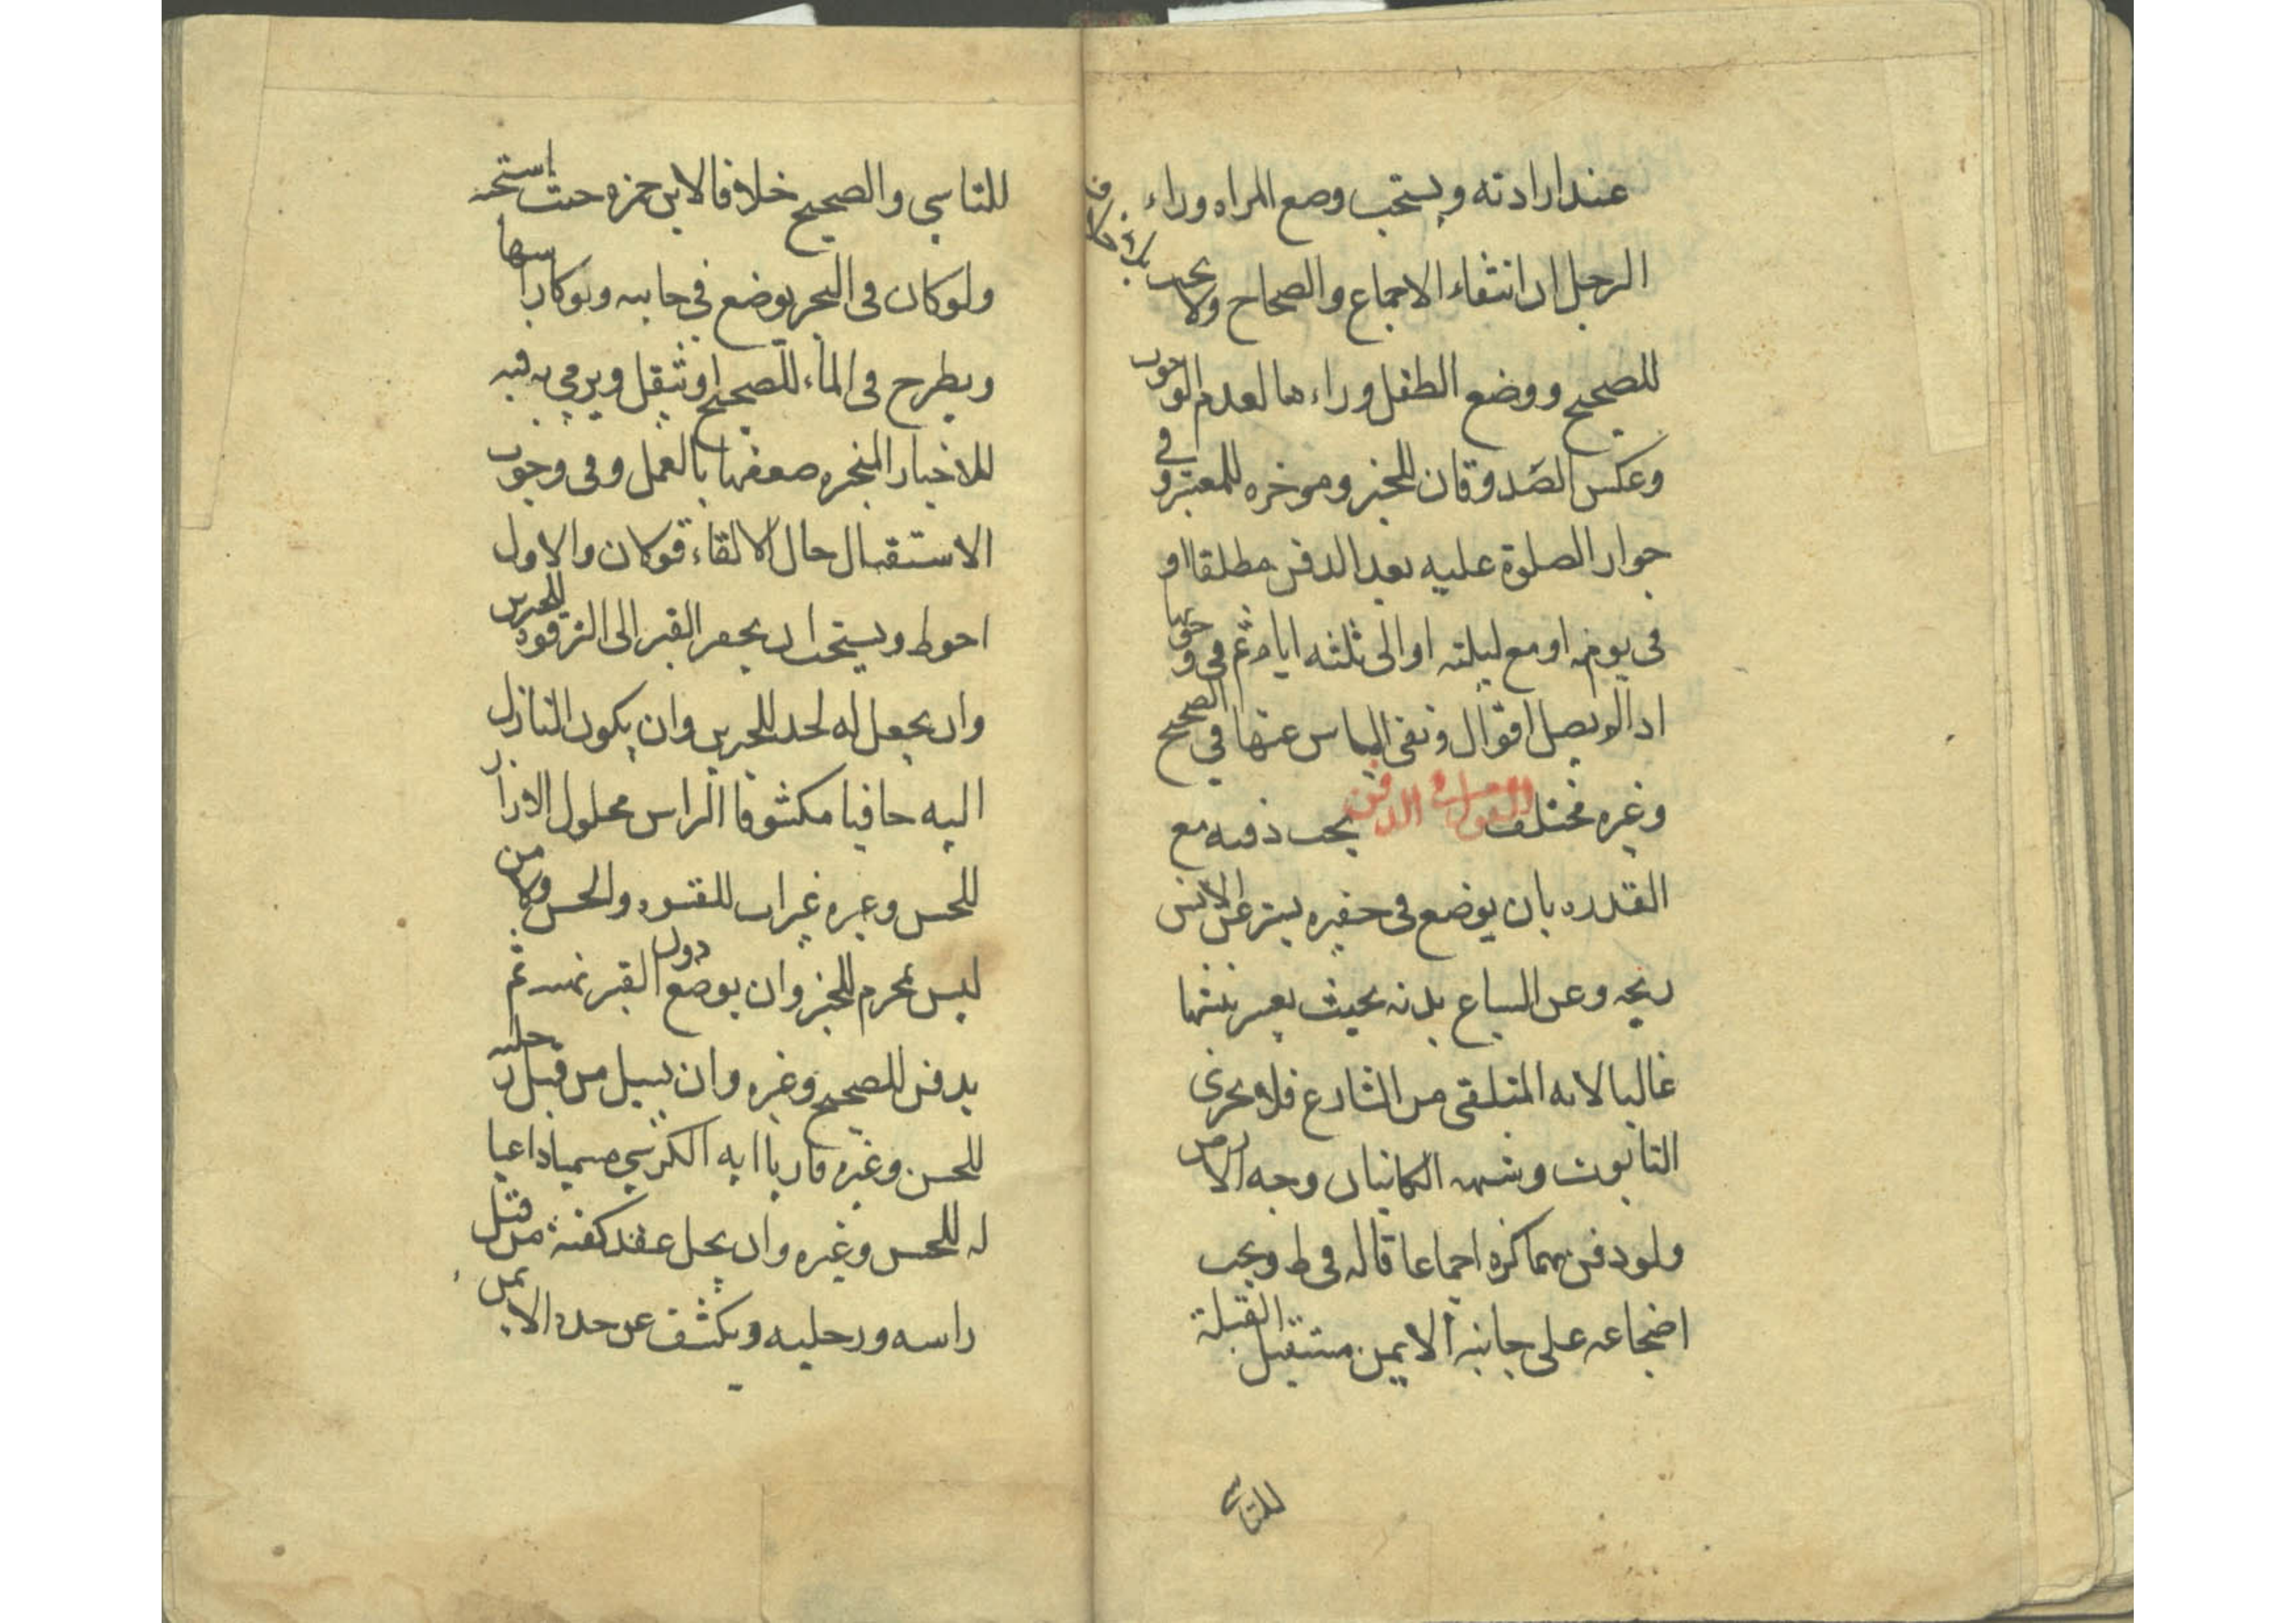 عند ارادته و يستحب وضع المراه وراء
الرجل ان اتفقا للاجماع والصحاح ولا يجب
للصحيح و وضع الطفل وراءها لعدم الوجوب
وعكس الصدوقان للخبر وموخره للمعتبر و في
جواز الصلوة عليه بعد الدفن مطلقا او
فى يومه او مع ليلته او الى ثلثه ايام ثم فى
اذا لم يصل اقوال و نفى الباس عنها في الصحيح
وغيره مختلف القول في الدفن يجب دفنه مع
القدره بان يوضع فى حفيره يستر عن الانس
ريحه وعن السباع بدنه بحيث يعسر نبشها
غالبا لانه المتلقى من الشارع فلا يجزى
التابوت وشبهه الكائنان وجه الارض
ولو دفن بهما كره اجماعا قاله فى ط ويجب
اضجاعه على جانبه الايمن مستقبل القبلة
للتاسي
للتاسي والصحيح خلافا لابن حمزه حيث استحبه
ولو كان فى البحر يوضع في خابيه ويوكا راسها
ويطرح فى الماء للصحيح او يثقل ويرمي به فيه
للاخبار المنجبره ضعفها بالعمل وفى وجوب
الاستقبال حال الالقاء قولان والاول
احوط ويستحب ان يحفر القبر الى الترقوه للخبرين
وان يجعل له لحد للخبرين وان يكون النازل
اليه حافيا مكشوفا الراس محلول الازرار
للحسن وغيره
ليس بمحرم للخبر وان يوضع دون القبر ثم
يدفن للصحيح وغيره وان يسل من قبل رجليه
للحسن وغيره قاريا ايه الكرسي داعيا
له للحسن وغيره وان يحل عقد كفنه من قبل
راسه ورجليه ويكشف عن خده الايمن